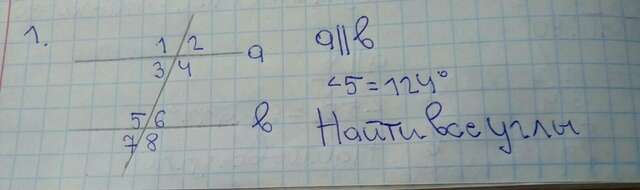 1.
1 2
3 4
a
a||b
<5=124°
5 6
7 8
в
Найти все углы